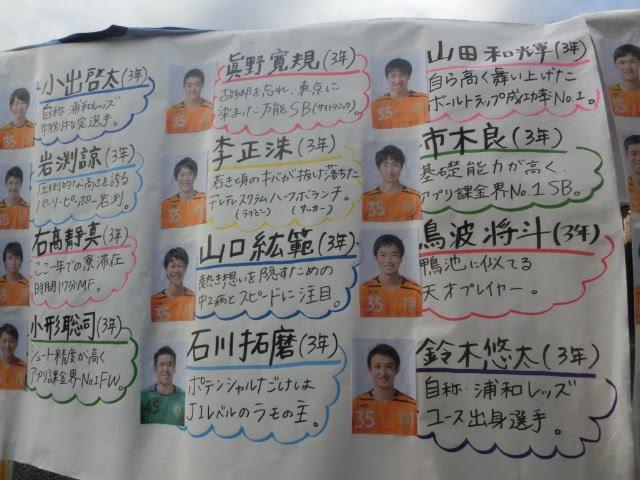 小出啓太(3年)
自称・浦和レッズ
特別指定選手。
岩渕諒(3年)
圧倒的な高さを誇る
パーリーピーポー岩渕。
石高静真(3年)
ここ一年での寮滞在
時間17分MF。
小形聡司(3年)
シュート精度が高く
アプリ課金界No.1FW。
眞野寛規(3年)
故郷を忘れ、東京に
染まった万能SB(サイドバック)
李正洙(3年)
若き頃のキバが抜け落ちた
デレデレスクラムハーフボランチ。
(ラグビー) (サッカー)
山口紘範(3年)
熱き想いを隠すための
中2病とスピードに注目。
石川拓磨(3年)
ポテンシャルだけは
J1レベルのラモの主。
山田和輝(3年)
自ら高く舞い上げた
ボールトラップ成功率No.1。
市木良(3年)
基礎能力が高く、
アプリ課金界No.1SB。
鳥波将斗(3年)
鴨池に似てる
天才プレイヤー。
鈴木悠太(3年)
自称・浦和レッズ
ユース出身選手。
35
35
35
35
35